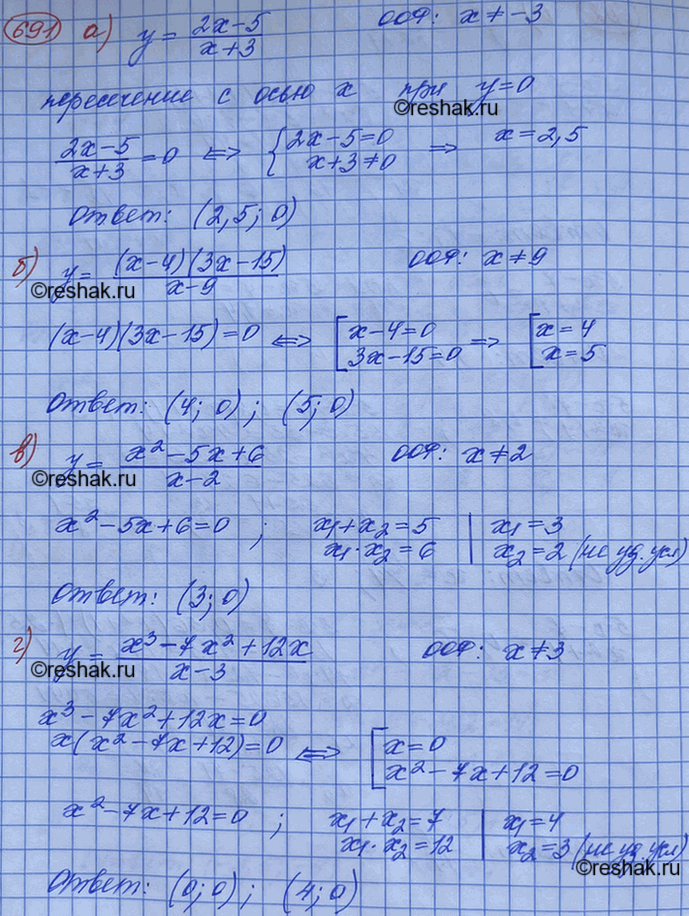 691 а) y = (2x-5)/(x+3) ООФ: x ≠ -3
пересечение с осью x при y=0
©reshak.ru
(2x-5)/(x+3) = 0 ⟺ { 2x-5=0 x+3≠0 ⟹ x = 2,5
Ответ: (2,5; 0)
б) y = (x-4)(3x-15)/(x-9) ООФ: x ≠ 9
©reshak.ru
(x-4)(3x-15)=0 ⟺ [ x-4=0 3x-15=0 ⟹ [ x=4 x=5
Ответ: (4; 0); (5; 0)
в) y = (x²-5x+6)/(x-2) ООФ: x ≠ 2
©reshak.ru
x²-5x+6=0 ; x₁+x₂=5 | x₁=3
x₁·x₂=6 | x₂=2 (не уд. усл)
Ответ: (3; 0)
г) y = (x³-7x²+12x)/(x-3) ООФ: x ≠ 3
©reshak.ru
x³-7x²+12x=0
x(x²-7x+12)=0 ⟺ [ x=0 x²-7x+12=0
x²-7x+12=0 ; x₁+x₂=7 | x₁=4
x₁·x₂=12 | x₂=3 (не уд. усл)
©reshak.ru
Ответ: (0; 0); (4; 0)